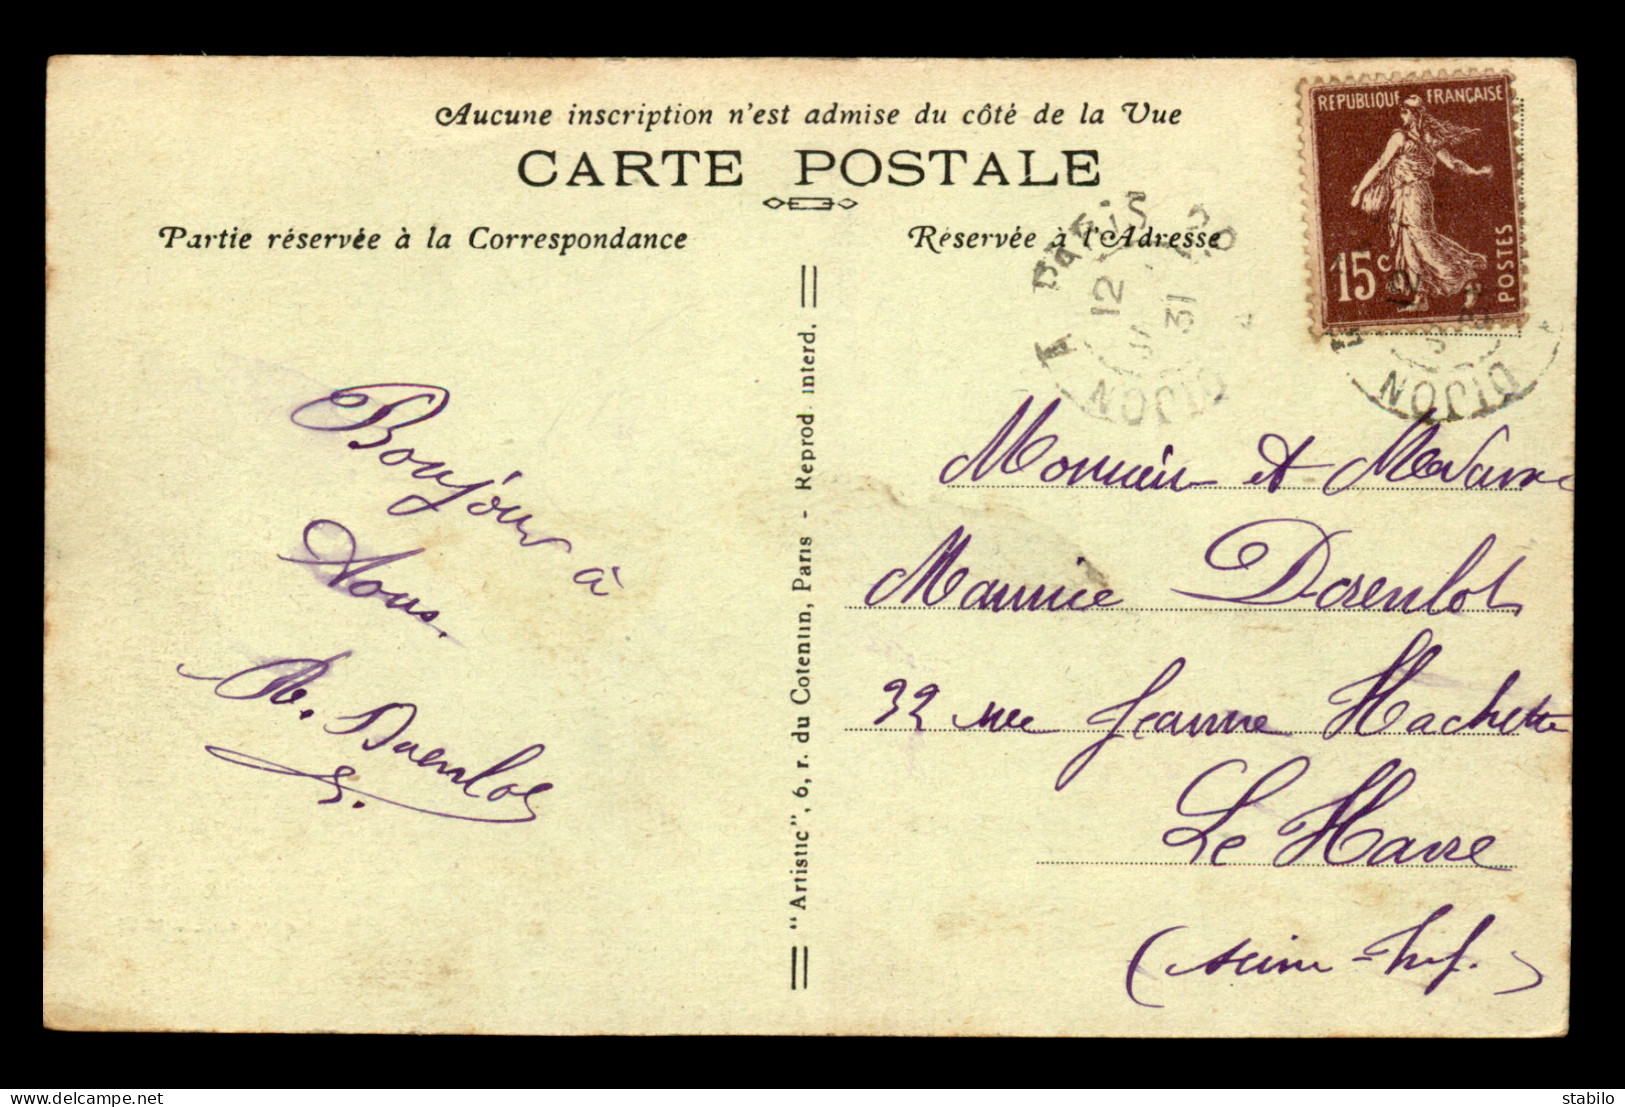 Aucune inscription n'est admise du côté de la Vue
CARTE POSTALE
Partie réservée à la Correspondance
Réservée à l'Adresse
REPUBLIQUE FRANÇAISE
15c
POSTES
PARIS
DIJON
12
31
DIJON
Bonjour à
Vous.
"Artistic", 6, r. du Cotentin, Paris - Reprod. interd.
Monsieur et Madame
Maurice
32 rue Jeanne Hachette
Le Havre
(Seine-Inf.)
delcampe.net
stabilo